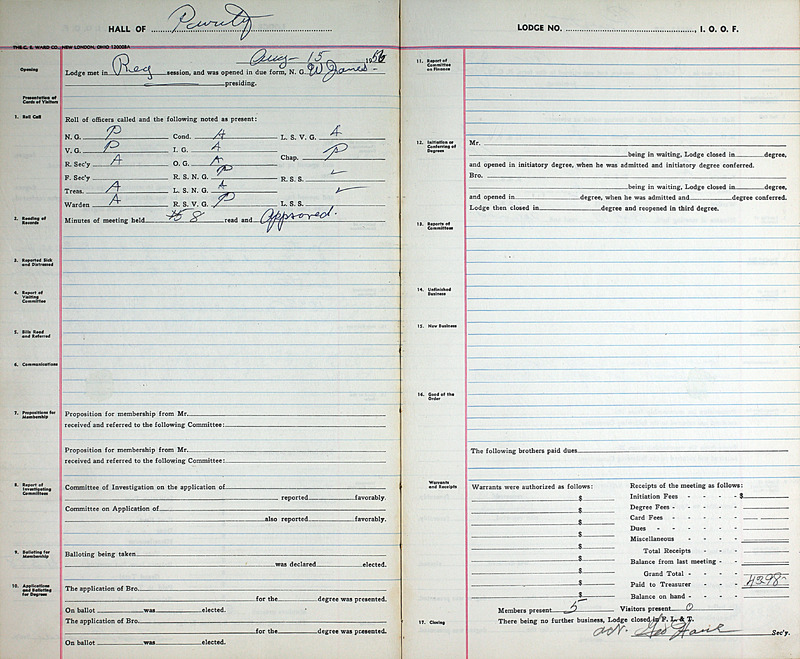 HALL OF Purity
THE C. E. WARD CO., NEW LONDON, OHIO 120008A
Aug- 15 1956
Opening
Lodge met in Reg session, and was opened in due form, N. G. W. Jones-
presiding.
Presentation of
Cards of Visitors
1. Roll Call
Roll of officers called and the following noted as present:
N. G. P Cond. A L. S. V. G. A
V. G. P I. G. A Chap. P
R. Sec'y A O. G. A
F. Sec'y R. S. N. G. P R. S. S. ✓
Treas. A L. S. N. G. A
Warden A R. S. V. G. P L. S. S. ✓
2. Reading of
Records
Minutes of meeting held 8 read and Approved.
3. Reported Sick
and Distressed
4. Report of
Visiting
Committee
5. Bills Read
and Referred
6. Communications
7. Propositions for
Membership
Proposition for membership from Mr.
received and referred to the following Committee:
Proposition for membership from Mr.
received and referred to the following Committee:
8. Report of
Investigating
Committees
Committee of Investigation on the application of
reported favorably.
Committee on Application of
also reported favorably.
9. Balloting for
Membership
Balloting being taken
was declared elected.
10. Applications
and Balloting
for Degrees
The application of Bro.
for the degree was presented.
On ballot was elected.
The application of Bro.
for the degree was presented.
On ballot was elected.
LODGE NO. , I. O. O. F.
11. Report of
Committee
on Finance
12. Initiation or
Conferring of
Degrees
Mr.
being in waiting, Lodge closed in degree,
and opened in initiatory degree, when he was admitted and initiatory degree conferred.
Bro.
being in waiting, Lodge closed in degree,
and opened in degree, when he was admitted and degree conferred.
Lodge then closed in degree and reopened in third degree.
13. Reports of
Committees
14. Unfinished
Business
15. New Business
16. Good of the
Order
The following brothers paid dues
Warrants
and Receipts
Warrants were authorized as follows: Receipts of the meeting as follows:
$ Initiation Fees - - - - $
$ Degree Fees - - - - -
$ Card Fees - - - -
$ Dues - - - - -
$ Miscellaneous - - - -
$ Total Receipts - -
$ Balance from last meeting - -
$ Grand Total - - -
$ Paid to Treasurer - - - 4298-
$ Balance on hand - - - -
Members present 5 Visitors present 0
17. Closing
There being no further business, Lodge closed in F. L. & T.
Geo Sec'y.